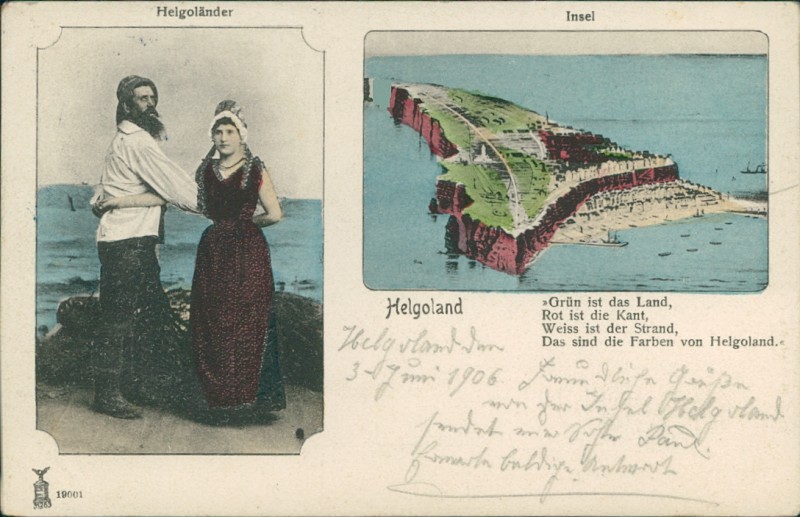 Helgoländer
Insel
Helgoland
»Grün ist das Land,
Rot ist die Kant,
Weiss ist der Strand,
Das sind die Farben von Helgoland.«
Helgoland den
3. Juni 1906. Freundliche Grüße
von der Insel Helgoland
sendet euer Paul.
Erwarte baldige Antwort
19001